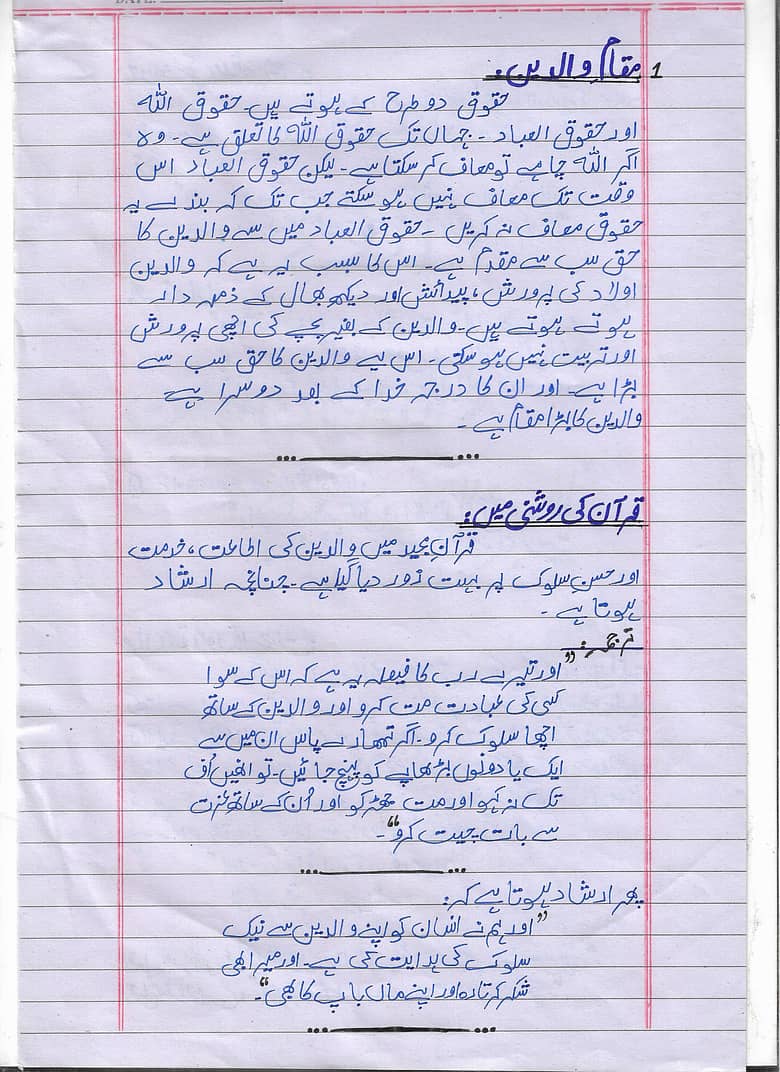 DATE:
1 مقامِ والدین:
حقوق دو طرح کے ہوتے ہیں۔ حقوق اللہ
اور حقوق العباد ۔ جہاں تک حقوق اللہ کا تعلق ہے۔ وہ
اگر اللہ چاہے تو معاف کر سکتا ہے۔ لیکن حقوق العباد اس
وقت تک معاف نہیں ہو سکتے جب تک کہ بندے یہ
حقوق معاف نہ کریں ۔ حقوق العباد میں سے والدین کا
حق سب سے مقدم ہے۔ اس کا سبب یہ ہے کہ والدین
اولاد کی پرورش ، پیدائش اور دیکھ بھال کے ذمہ دار
ہوتے ہوتے ہیں۔ والدین کے بغیر بچے کی اچھی پرورش
اور تربیت نہیں ہو سکتی۔ اس لیے والدین کا حق سب سے
بڑا ہے۔ اور ان کا درجہ خدا کے بعد دوسرا ہے
والدین کا بڑا مقام ہے ۔
قرآن کی روشنی میں:
قرآنِ مجید میں والدین کی اطاعت ، خدمت
اور حسنِ سلوک پر بہت زور دیا گیا ہے ۔ چنانچہ ارشاد
ہوتا ہے ۔
ترجمہ: "
اور تیرے رب کا فیصلہ یہ ہے کہ اس کے سوا
کسی کی عبادت مت کرو اور والدین کے ساتھ
اچھا سلوک کرو ۔ اگر تمھارے پاس ان میں سے
ایک یا دونوں بڑھاپے کو پہنچ جائیں۔ تو انھیں اُف
تک نہ کہو اور مت جھڑکو اور اُن کے ساتھ عزت
سے بات چیت کرو"۔
پھر ارشاد ہوتا ہے کہ:
"اور ہم نے انسان کو اپنے والدین سے نیک
سلوک کی ہدایت کی ہے۔ اور میرا بھی
شکر کرتا رہ اور اپنے ماں باپ کا بھی"۔